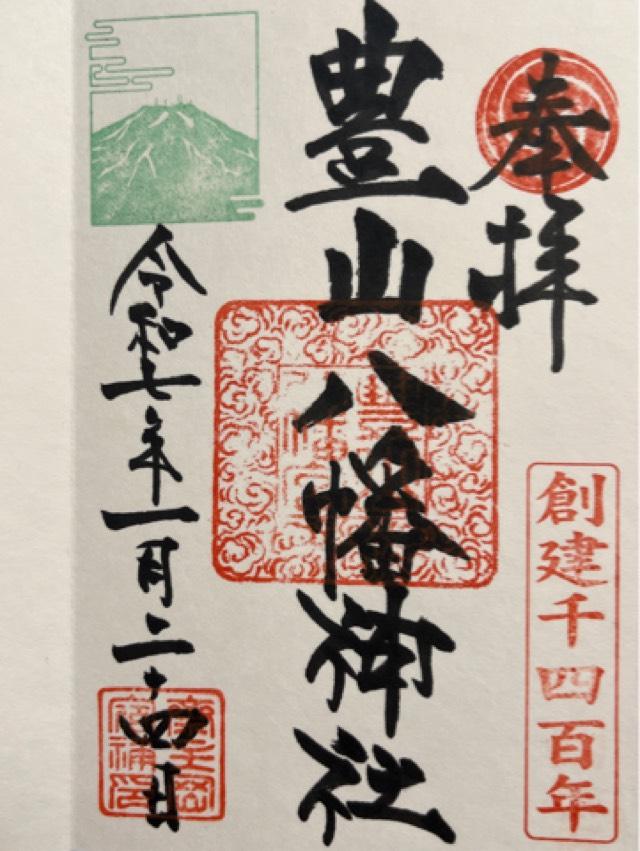 奉拝
創建千四百年
豊山八幡神社
令和七年一月二十四日